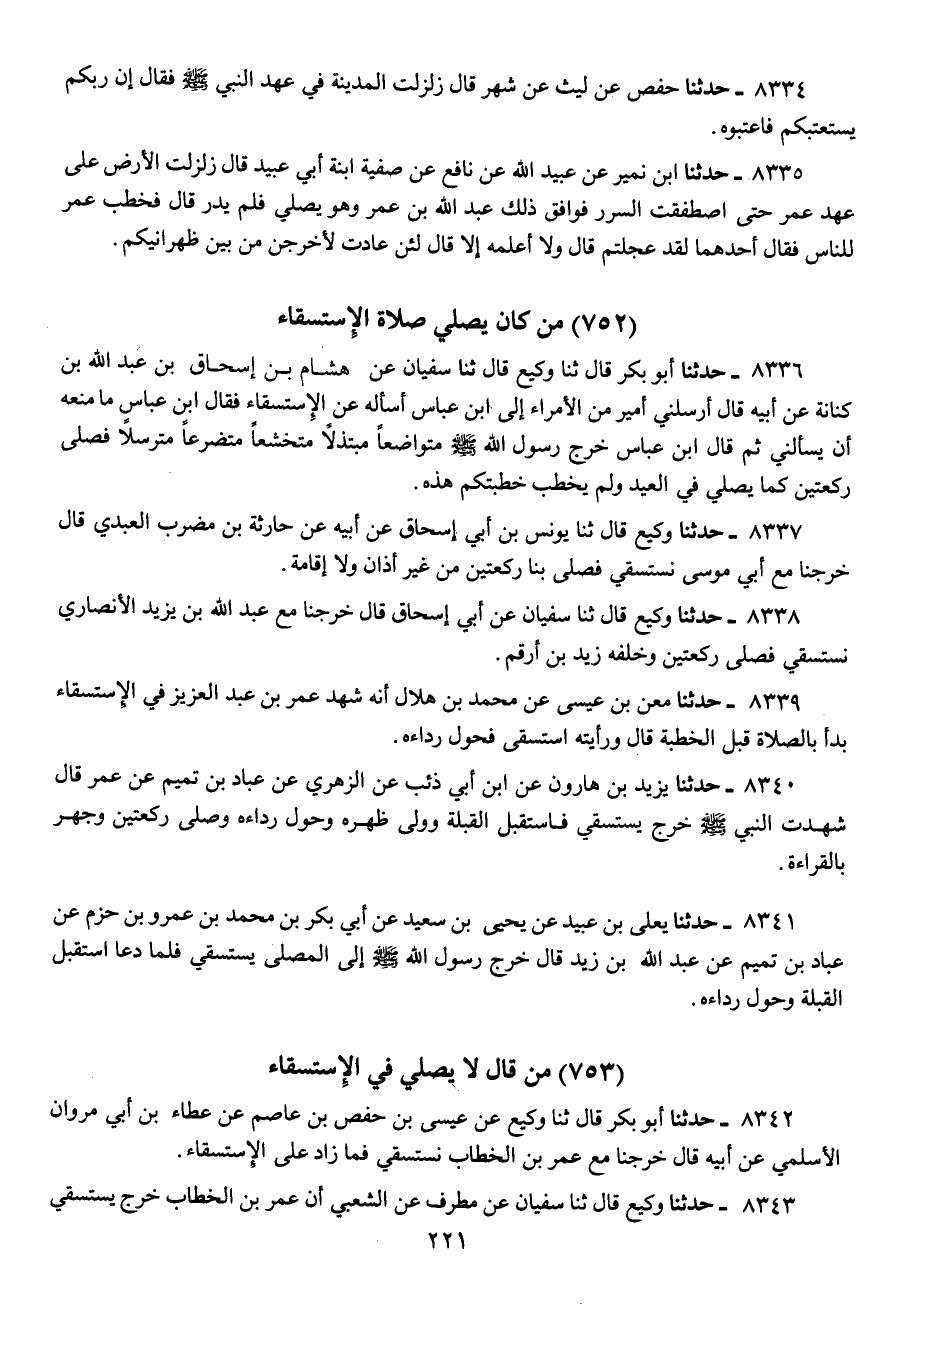 ٨٣٣٤ ـ حدثنا حفص عن ليث عن شهر قال زلزلت المدينة في عهد النبي ﷺ فقال إن ربكم
يستعتبكم فاعتبوه.
٨٣٣٥ ـ حدثنا ابن نمير عن عبيد الله عن نافع عن صفية ابنة أبي عبيد قال زلزلت الأرض على
عهد عمر حتى اصطفقت السرر فوافق ذلك عبد الله بن عمر وهو يصلي فلم يدر قال فخطب عمر
للناس فقال أحدهما لقد عجلتم قال ولا أعلمه إلا قال لئن عادت لأخرجن من بين ظهرانيكم.
(٧٥٢) من كان يصلي صلاة الإستسقاء
٨٣٣٦ ـ حدثنا أبو بكر قال ثنا وكيع قال ثنا سفيان عن هشام بن إسحاق بن عبد الله بن
كنانة عن أبيه قال أرسلني أمير من الأمراء إلى ابن عباس أسأله عن الإستسقاء فقال ابن عباس ما منعه
أن يسألني ثم قال ابن عباس خرج رسول الله ﷺ متواضعاً مبتذلاً متخشعاً متضرعاً مترسلاً فصلى
ركعتين كما يصلي في العيد ولم يخطب خطبتكم هذه.
٨٣٣٧ ـ حدثنا وكيع قال ثنا يونس بن أبي إسحاق عن أبيه عن حارثة بن مضرب العبدي قال
خرجنا مع أبي موسى نستسقي فصلى بنا ركعتين من غير أذان ولا إقامة.
٨٣٣٨ ـ حدثنا وكيع قال ثنا سفيان عن أبي إسحاق قال خرجنا مع عبد الله بن يزيد الأنصاري
نستسقي فصلى ركعتين وخلفه زيد بن أرقم.
٨٣٣٩ ـ حدثنا معن بن عيسى عن محمد بن هلال أنه شهد عمر بن عبد العزيز في الإستسقاء
بدأ بالصلاة قبل الخطبة قال ورأيته استسقى فحول رداءه.
٨٣٤٠ ـ حدثنا يزيد بن هارون عن ابن أبي ذئب عن الزهري عن عباد بن تميم عن عمر قال
شهدت النبي ﷺ خرج يستسقي فاستقبل القبلة وولى ظهره وحول رداءه وصلى ركعتين وجهر
بالقراءة.
٨٣٤١ ـ حدثنا يعلى بن عبيد عن يحيى بن سعيد عن أبي بكر بن محمد بن عمرو بن حزم عن
عباد بن تميم عن عبد الله بن زيد قال خرج رسول الله ﷺ إلى المصلى يستسقي فلما دعا استقبل
القبلة وحول رداءه.
(٧٥٣) من قال لا يصلي في الإستسقاء
٨٣٤٢ ـ حدثنا أبو بكر قال ثنا وكيع عن عيسى بن حفص بن عاصم عن عطاء بن أبي مروان
الأسلمي عن أبيه قال خرجنا مع عمر بن الخطاب نستسقي فما زاد على الإستسقاء.
٨٣٤٣ ـ حدثنا وكيع قال ثنا سفيان عن مطرف عن الشعبي أن عمر بن الخطاب خرج يستسقي
٢٢١